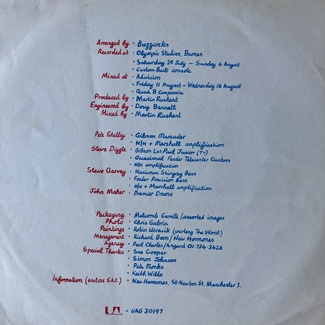 Arranged by · Buzzcocks
Recorded at · Olympic Studios, Barnes
· Saturday 29 July – Sunday 6 August
· Custom built console
Mixed at · Advision
· Friday 11 August – Wednesday 16 August
· Quad 8 Compumix
Produced by · Martin Rushent
Engineered by · Doug Bennett
Mixed by · Martin Rushent
Pete Shelley · Gibson Marauder
· H/H + Marshall amplification
Steve Diggle · Gibson Les Paul Junior (TV)
· Occasional Fender Telecaster Custom
· H/H amplification
Steve Garvey · Hayman Stingray Bass
· Fender Precision Bass
· H/H + Marshall amplification
John Maher · Premier Drums
Packaging · Malcolm Garrett/assorted images
Photo · Chris Gabrin
Paintings · Robin Utracik (owing The Worst)
Management · Richard Boon/New Hormones
Agency · Paul Charles/Asgard 01 734-3426
Special Thanks · Sue Cooper
· Simon Johnson
· Pete Monks
· Keith Wilde
Information (enclose S.A.E.) · New Hormones, 50 Newton St. Manchester 1.
UA · UAG 30197